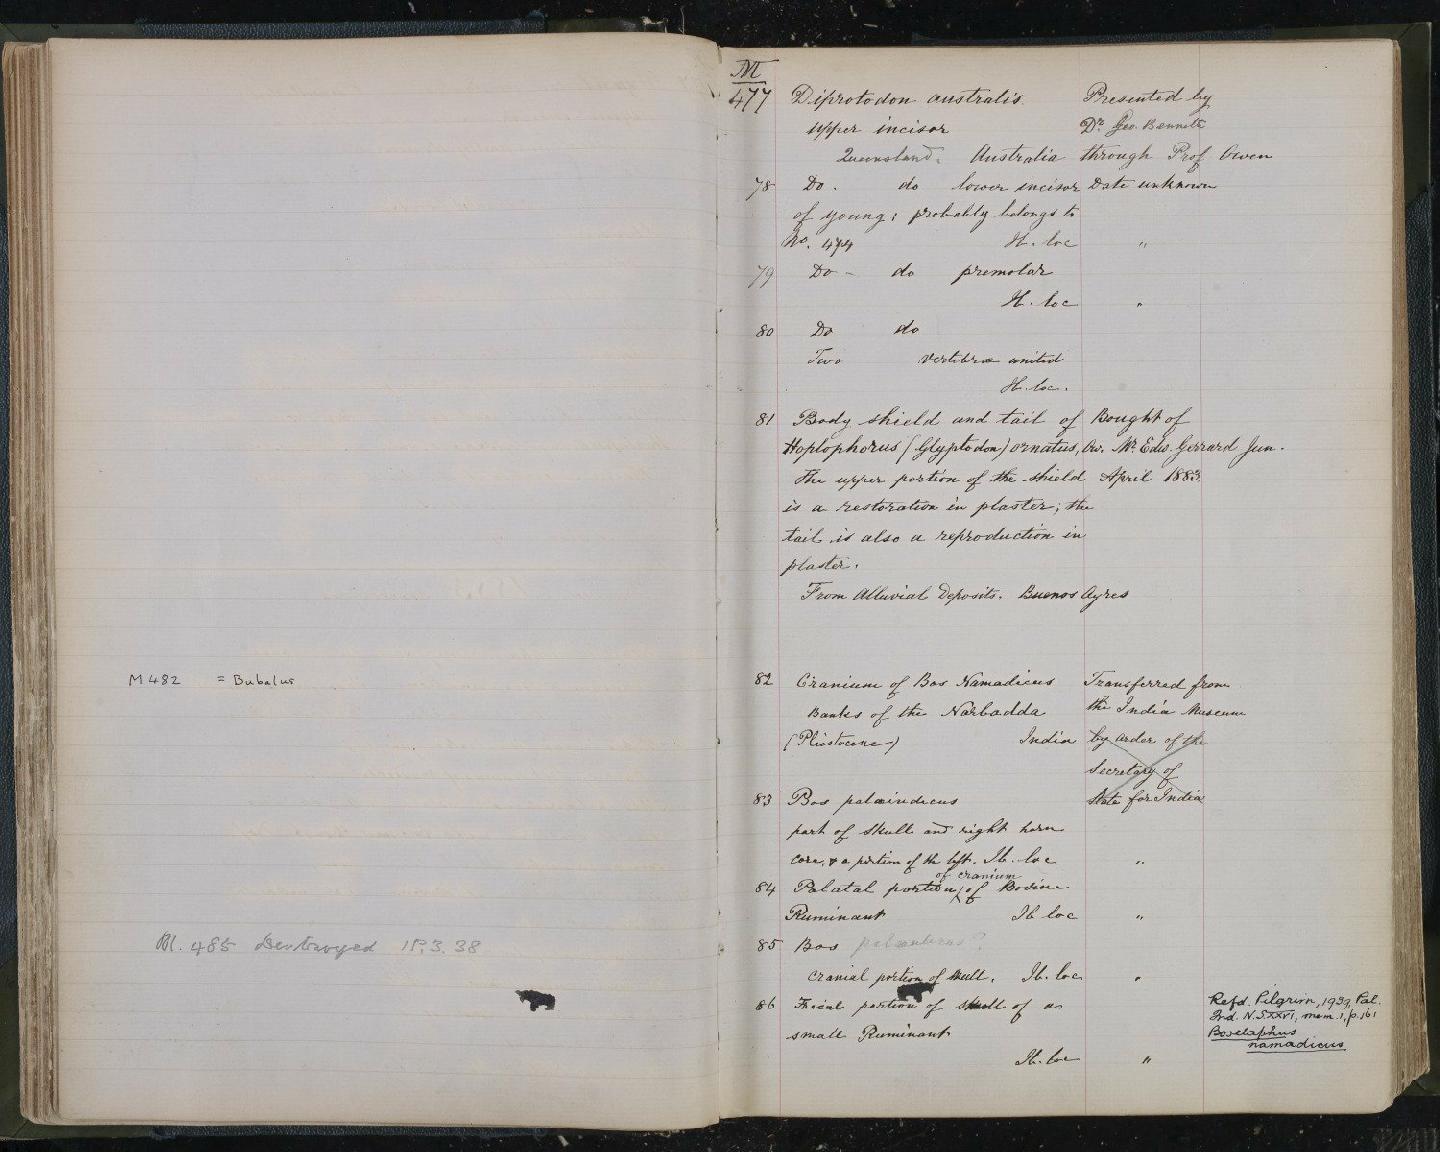 M 482 = Bubalus
M. 485 Destroyed 18.3.38
M
477 Diprotodon australis. Presented by
upper incisor Dr. Geo. Bennett
Queensland. Australia through Prof Owen
78 Do. do lower incisor Date unknown
of young; probably belongs to
No. 474 Ib. loc "
79 Do - do premolar
Ib. loc "
80 Do do
Two vertebræ united
Ib. loc.
81 Body shield and tail of Bought of
Hoplophorus (Glyptodon) ornatus, Ow. Mr. Edw. Gerrard Jun.
The upper portion of the shield April 1883.
is a restoration in plaster; the
tail is also a reproduction in
plaster.
From Alluvial Deposits. Buenos Ayres
82 Cranium of Bos Namadicus Transferred from
Banks of the Narbadda the India Museum
(Pleistocene) India by order of the
Secretary of
83 Bos palæindicus State for India
part of skull and right horn
core, & a portion of the left. Ib. loc "
of cranium
84 Palatal portion of Bovine
Ruminant Ib loc "
85 Bos
Cranial portion of skull. Ib. loc "
86 Facial portion of skull of a
small Ruminant
Ib. loc "
Refd. Pilgrim, 1939, Pal.
Ind. N.S XXVI, mem. 1, p. 161
Boselaphus
namadicus